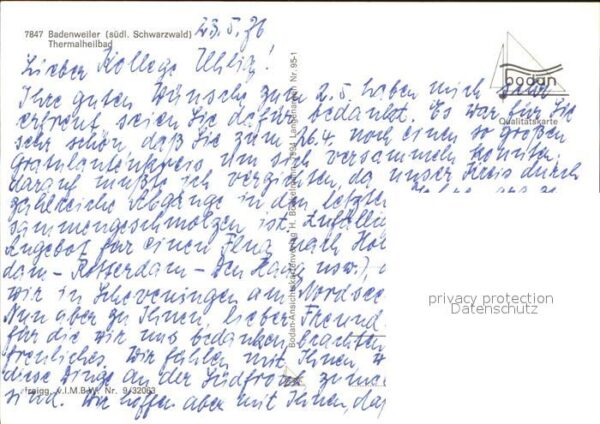 7847 Badenweiler (südl. Schwarzwald)
Thermalheilbad
23.5.76
bodan
Qualitätskarte
Lieber Kollege Uhlig!
Ihre guten Wünsche zum 2.5. haben mich sehr
erfreut seien Sie dafür bedankt. Es war für Sie
sehr schön, daß Sie zum 26.4. noch einen so großen
Gratulantenkreis um sich versammeln konnten,
darauf mußte ich verzichten, da unser Kreis durch
zahlreiche Abgänge in den letzten
zusammengeschmolzen ist.
Angebot für einen Flug nach
dam - Rotterdam - Den Haag usw.),
wir in Scheveningen am Nordsee
Nun aber zu Ihnen, lieber Freund
für die wir uns bedanken
Wir fühlen mit Ihnen,
diese Dinge an der
sind. Wir hoffen aber mit Ihnen, daß
Bodan-Ansichtskartenverlag H.
Nr. 95-1
freigg. v.I.M.B.W. Nr. 9/32063
privacy protection
Datenschutz